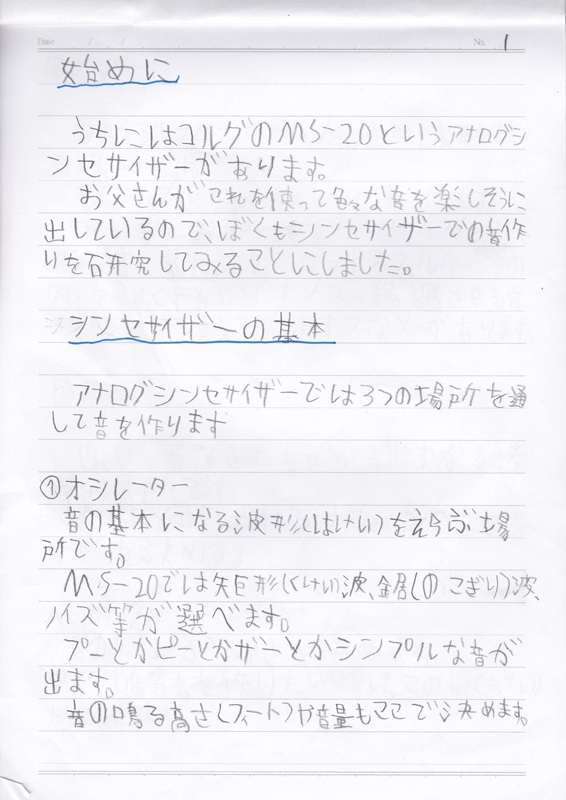 Date
No. 1
始めに
うちにはコルグのMS-20というアナログシ
ンセサイザーがあります。
お父さんがこれを使って色々な音を楽しそうに
出しているので、ぼくもシンセサイザーでの音作
りを研究してみることにしました。
シンセサイザーの基本
アナログシンセサイザーでは3つの場所を通
して音を作ります
①オシレーター
音の基本になる波形(はけい)をえらぶ場
所です。
MS-20では矩形(くけい)波、鋸(のこぎり)波、
ノイズ等が選べます。
プーとかピーとかザーとかシンプルな音が
出ます。
音の鳴る高さ(フィート)や音量もここで決めます。